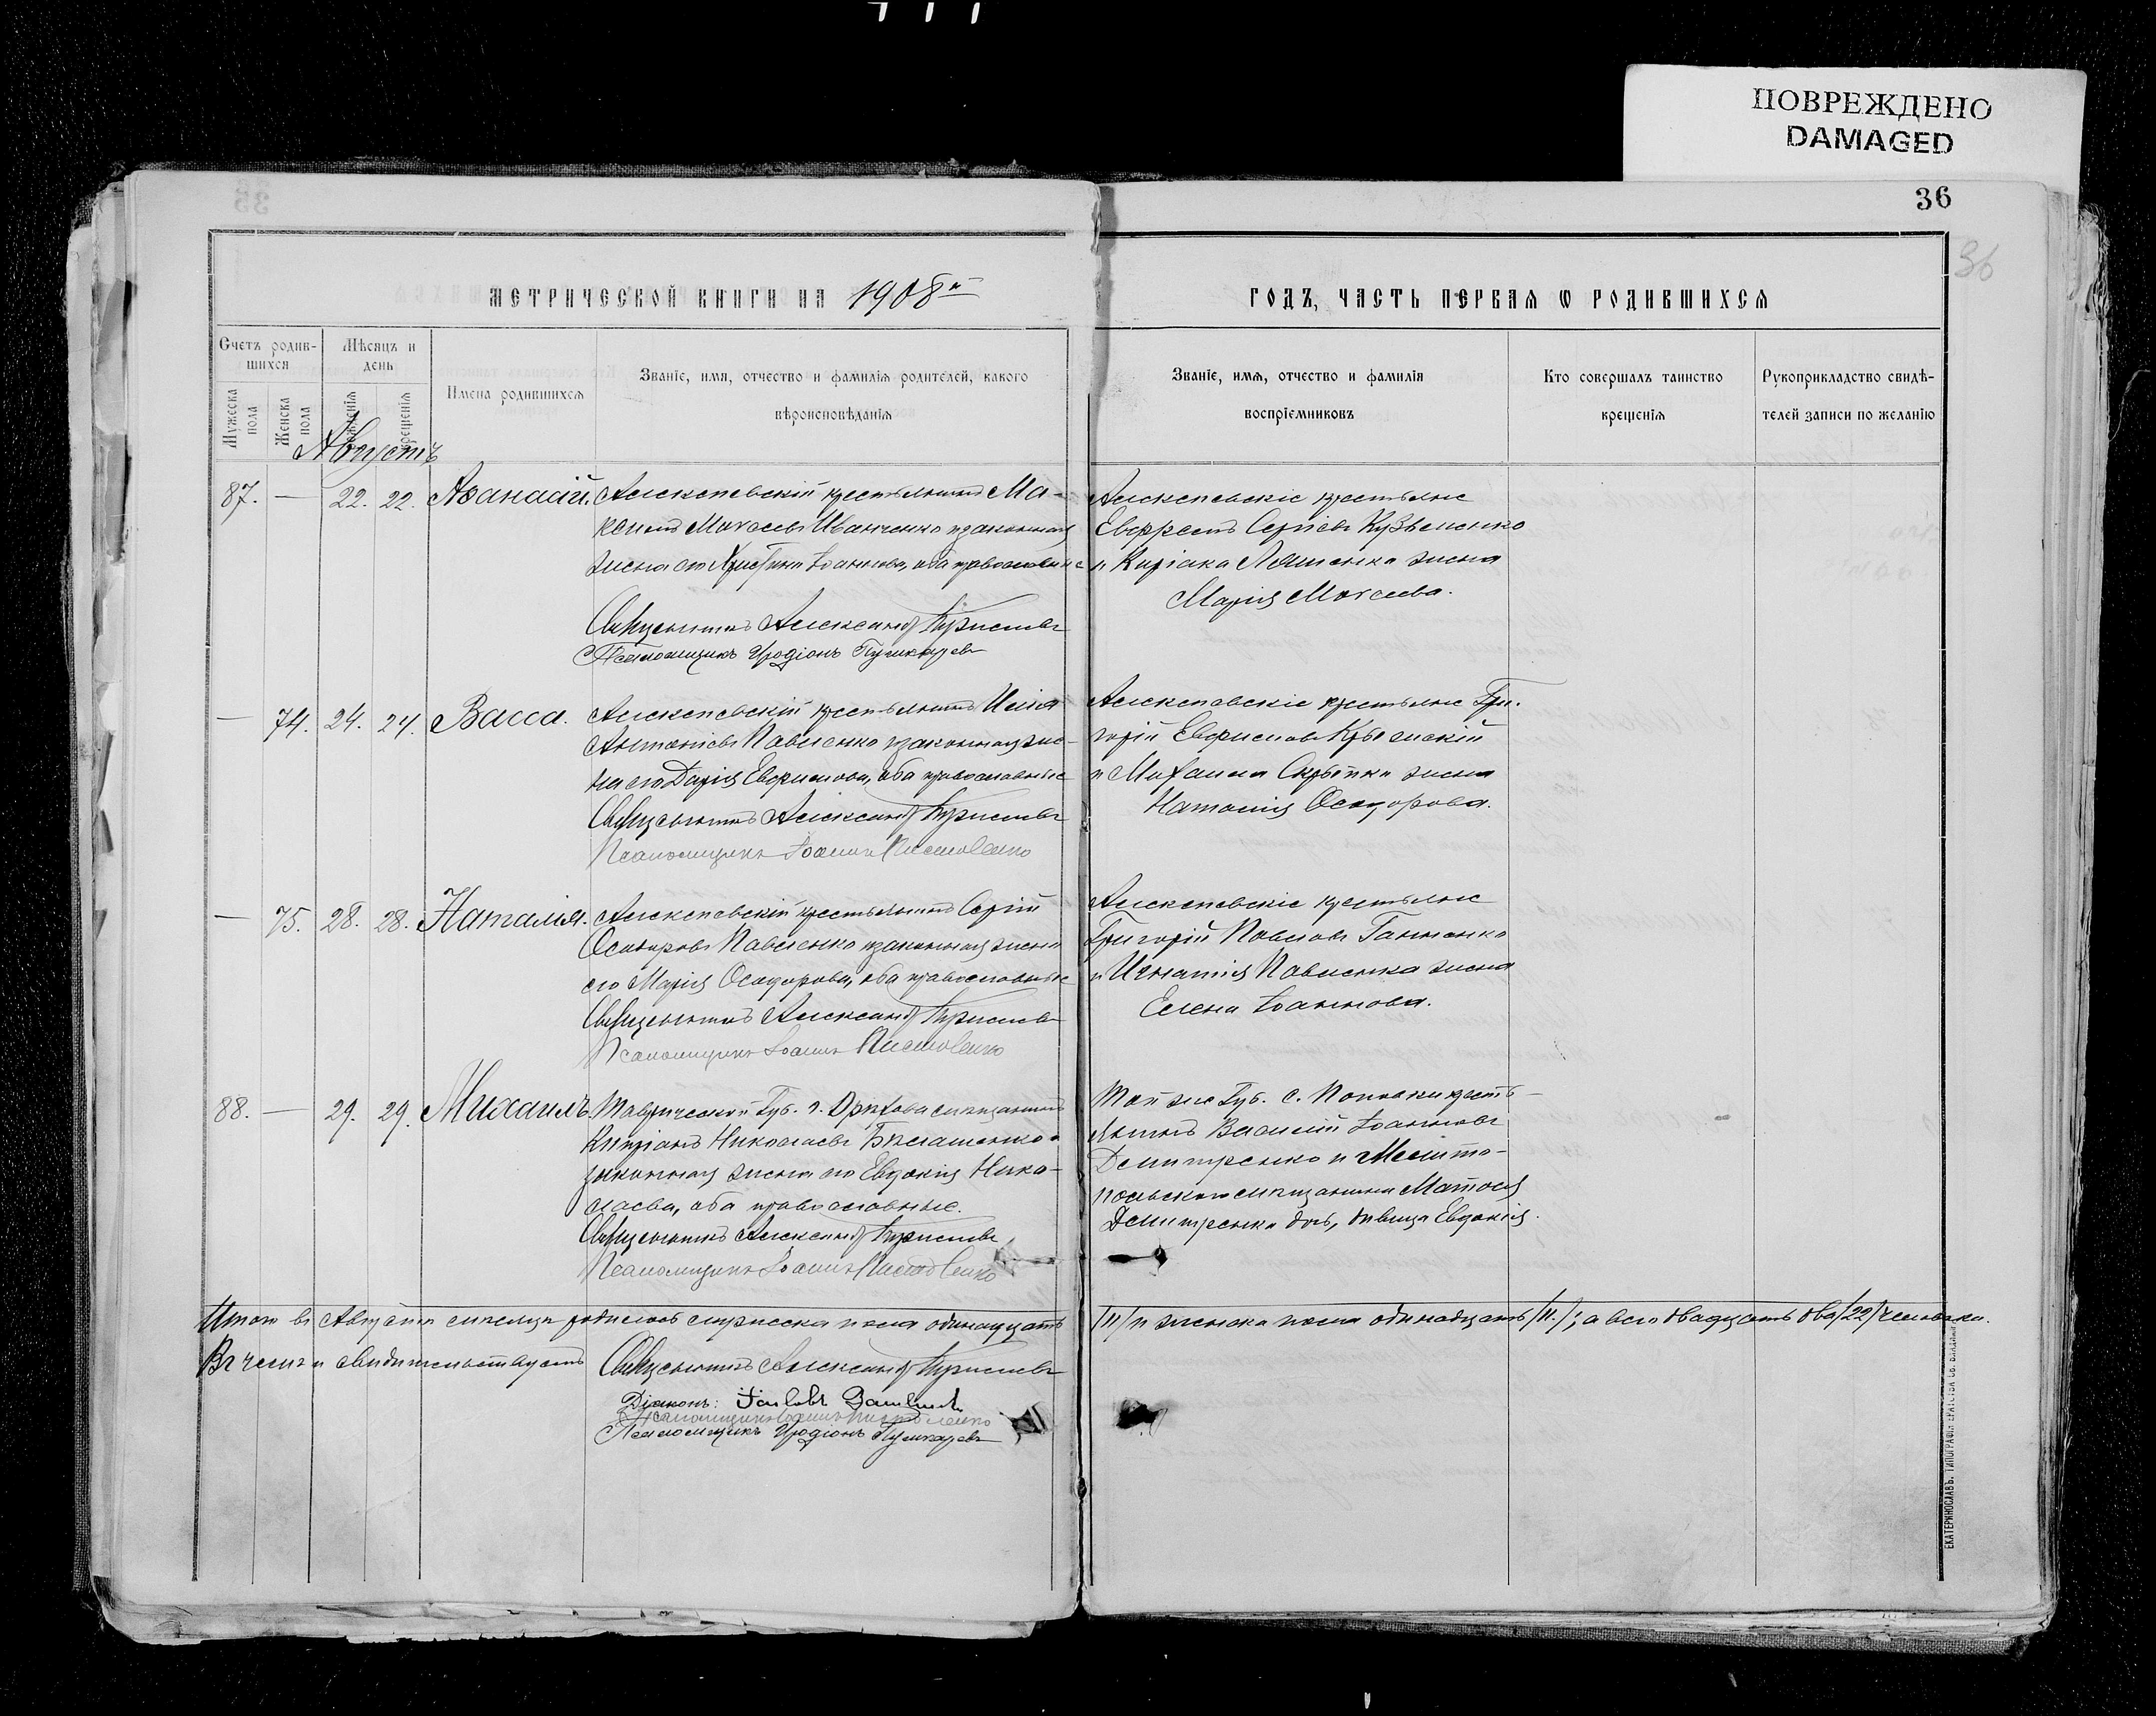 ПОВРЕЖДЕНО
DAMAGED
36
36
МЕТРИЧЕСКОЙ КНИГИ НА 1908й
ГОДЪ, ЧАСТЬ ПЕРВАЯ Ѡ РОДИВШИХСЯ
Счетъ родив-
шихся
Мужеска пола
Женска пола
Мѣсяцъ и
день
рожденія
крещенія
Имена родившихся
Званіе, имя, отчество и фамилія родителей, какого
вѣроисповѣданія
Званіе, имя, отчество и фамилія
воспріемниковъ
Кто совершалъ таинство
крещенія
Рукоприкладство свидѣ-
телей записи по желанію
Августъ
87. — 22. 22. Аѳанасій.
Алексѣевскій крестьянинъ Ма-
Моѵсеевъ Иванченко и законная
жена его Христина Іоаннова, оба православные
Священникъ Александръ
Псаломщикъ Иродіонъ Пушкаревъ
Алексѣевскіе крестьяне
Сергіевъ Кузьменко
и Киріака Ляшенка жена
Марія Моѵсеева.
— 74. 24. 24. Васса.
Алексѣевскій крестьянинъ Илія
Антоніевъ Павленко и законная же-
на его Дарія Евфимова, оба православные
Священникъ Александръ
Псаломщикъ Іоаннъ
Алексѣевскіе крестьяне Гри-
горій Евфимовъ Крымскій
и Михаила Скрыпки жена
Наталія Ѳеодорова.
— 75. 28. 28. Наталія.
Алексѣевскій крестьянинъ Сергій
Павленко и законная жена
его Марія Ѳеодорова, оба православные
Священникъ Александръ
Псаломщикъ Іоаннъ
Алексѣевскіе крестьяне
Григорій Павловъ Ганненко
и Игнатія Павленка жена
Елена Іоаннова.
88. — 29. 29. Михаилъ.
Таврической Губ. г. Орѣхова мѣщанинъ
Кипріанъ Николаевъ Билашенко и
законная жена его Евдокія Нико-
лаева, оба православные.
Священникъ Александръ
Псаломщикъ Іоаннъ
Той же Губ. с. Поповки кресть-
янинъ Василій Іоанновъ
Демитренко и Мелито-
польскаго мѣщанина Матѳея
Демитренка дочь, дѣвица Евдокія.
Итого въ Августѣ мѣсяцѣ родилось мужеска пола одинадцать /11/ и женска пола одинадцать /11./; а всего двадцать два /22/ человѣка.
Въ чемъ и свидѣтельствуемъ
Священникъ Александръ
Діаконъ:
Псаломщикъ Іоаннъ
Псаломщикъ Иродіонъ Пушкаревъ